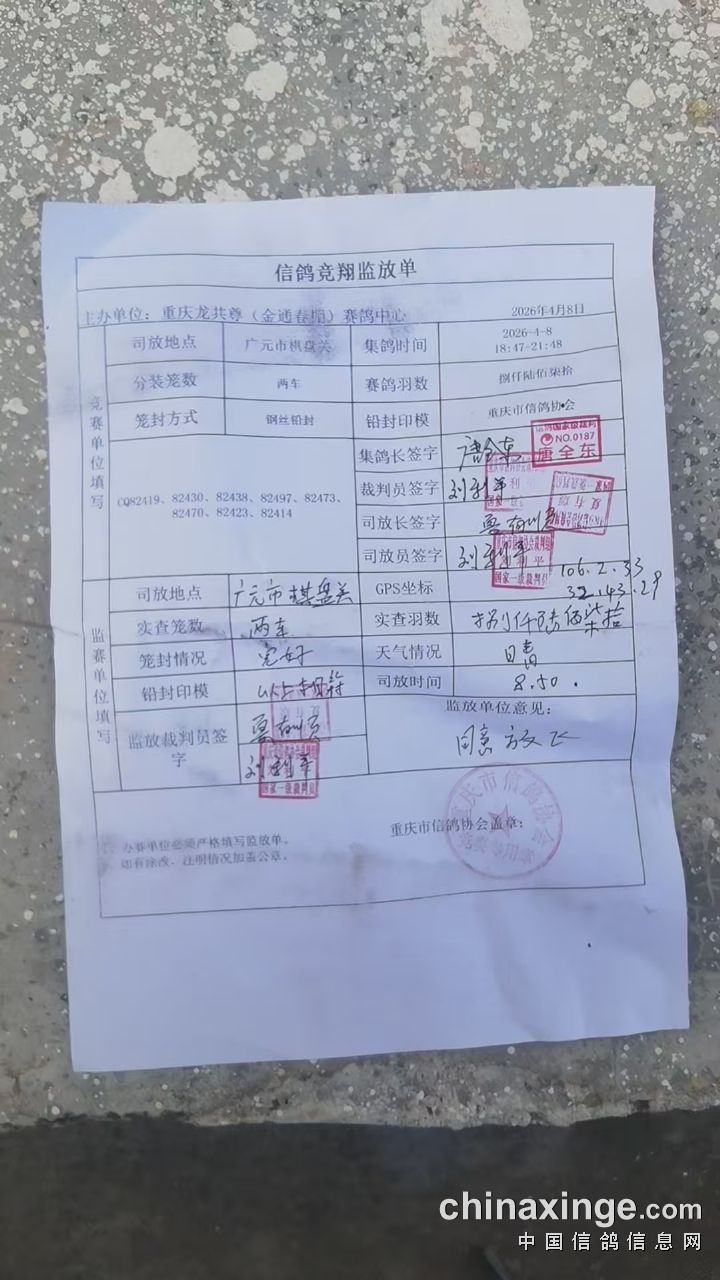 信鸽竞翔监放单
主办单位：重庆龙共尊（金通春雨）赛鸽中心 2026年4月8日
竞赛单位填写
司放地点 广元市棋盘关 集鸽时间 2026-4-8
18:47-21:48
分装笼数 两车 赛鸽羽数 捌仟陆佰柒拾
笼封方式 钢丝铅封 铅封印模 重庆市信鸽协会
CQ82419、82430、82438、82497、82473、
82470、82423、82414
集鸽长签字 唐全东
NO.0187
唐全东
裁判员签字 刘利军
司放长签字
司放员签字 刘利军
国家一级裁判员
监赛单位填写
司放地点 广元市棋盘关 GPS坐标 106.2.33
32.43.29
实查笼数 两车 实查羽数 捌仟陆佰柒拾
笼封情况 完好 天气情况 晴
铅封印模 司放时间 8.50.
监放裁判员签字 刘利军
国家一级裁判员
监放单位意见：
同意放飞
办赛单位必须严格填写监放单。
如有涂改，注明情况加盖公章。
重庆市信鸽协会盖章：
重庆市信鸽协会
竞赛专用章
chinaxinge.com
中国信鸽信息网